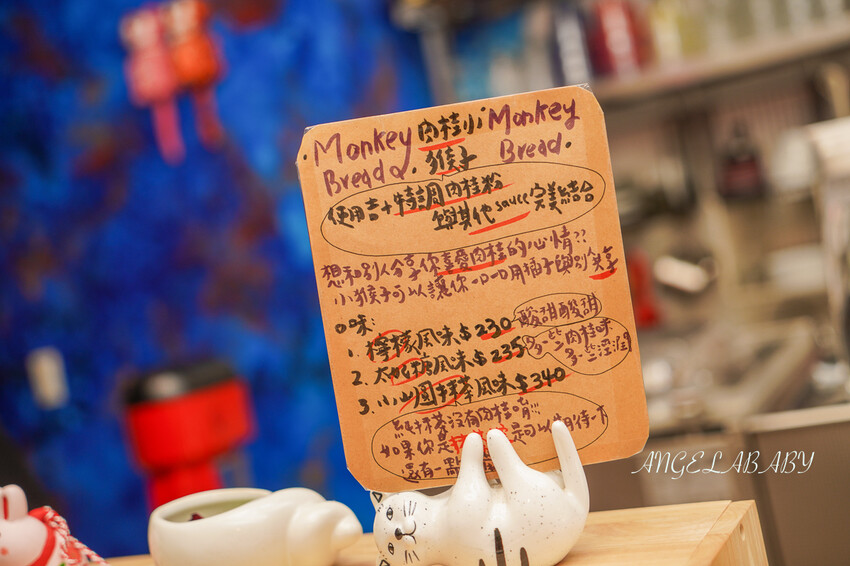 Monkey 肉桂小 Monkey
Bread 猴子 Bread.
使用吉+特調肉桂粉
與其他sauce完美結合
想和別人分享你喜愛肉桂的心情??
小猴子可以讓你一口一口用補子與別人分享
口味:
1. 檸檬風味$230 酸甜酸甜
2. 太妃糖風味$225 多一些肉桂味
多一些溼潤
3. 小山園抹茶風味$340
純抹茶沒有肉桂唷!!!
如果你是 是可以期待一下
還有一點
ANGELABABY